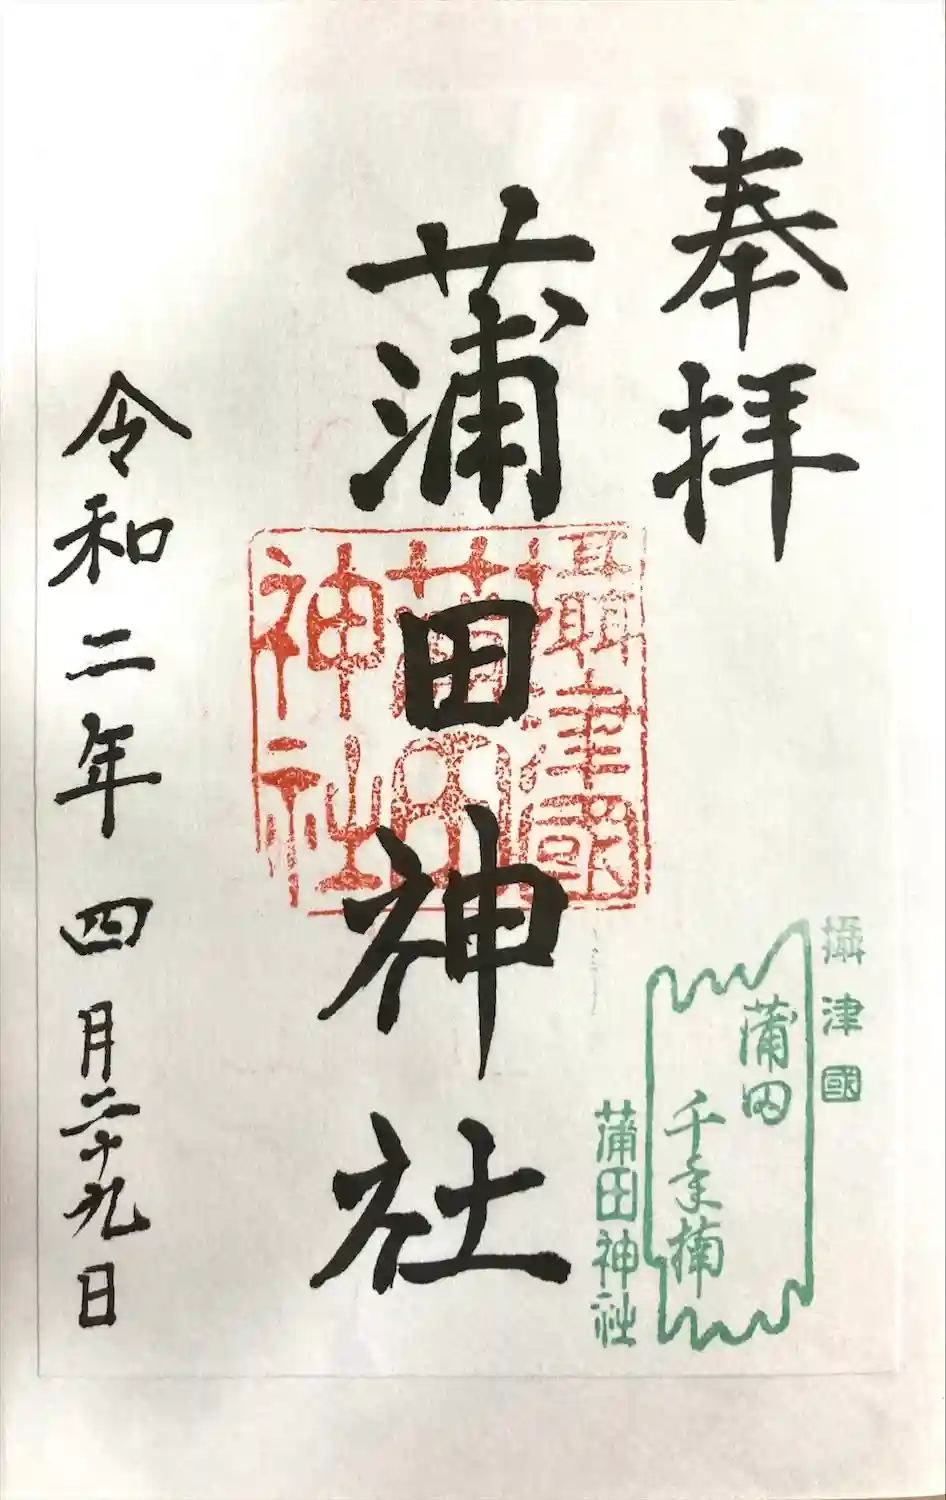 奉拝
攝津國
蒲田
千年楠
蒲田神社
蒲田神社
攝津國
蒲田
神社
令和二年四月二十九日